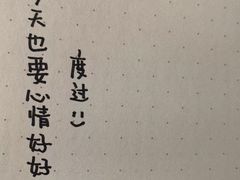 天也要心情好好
度过